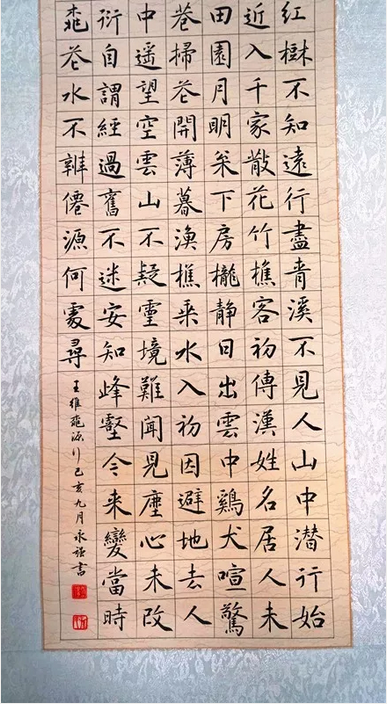 红樹不知遠行盡青溪不見人山中潛行始
近入千家散花竹樵客初傳漢姓名居人未
田園月明枀下房櫳静日出雲中鷄犬喧驚
巷掃花開薄暮漁樵乗水入初因避地去人
中遥望空雲山不疑靈境難聞見塵心未改
衍自謂經過舊不迷安知峰壑今来變當時
桃花水不辨僊源何處尋
王維桃源行己亥九月永强書